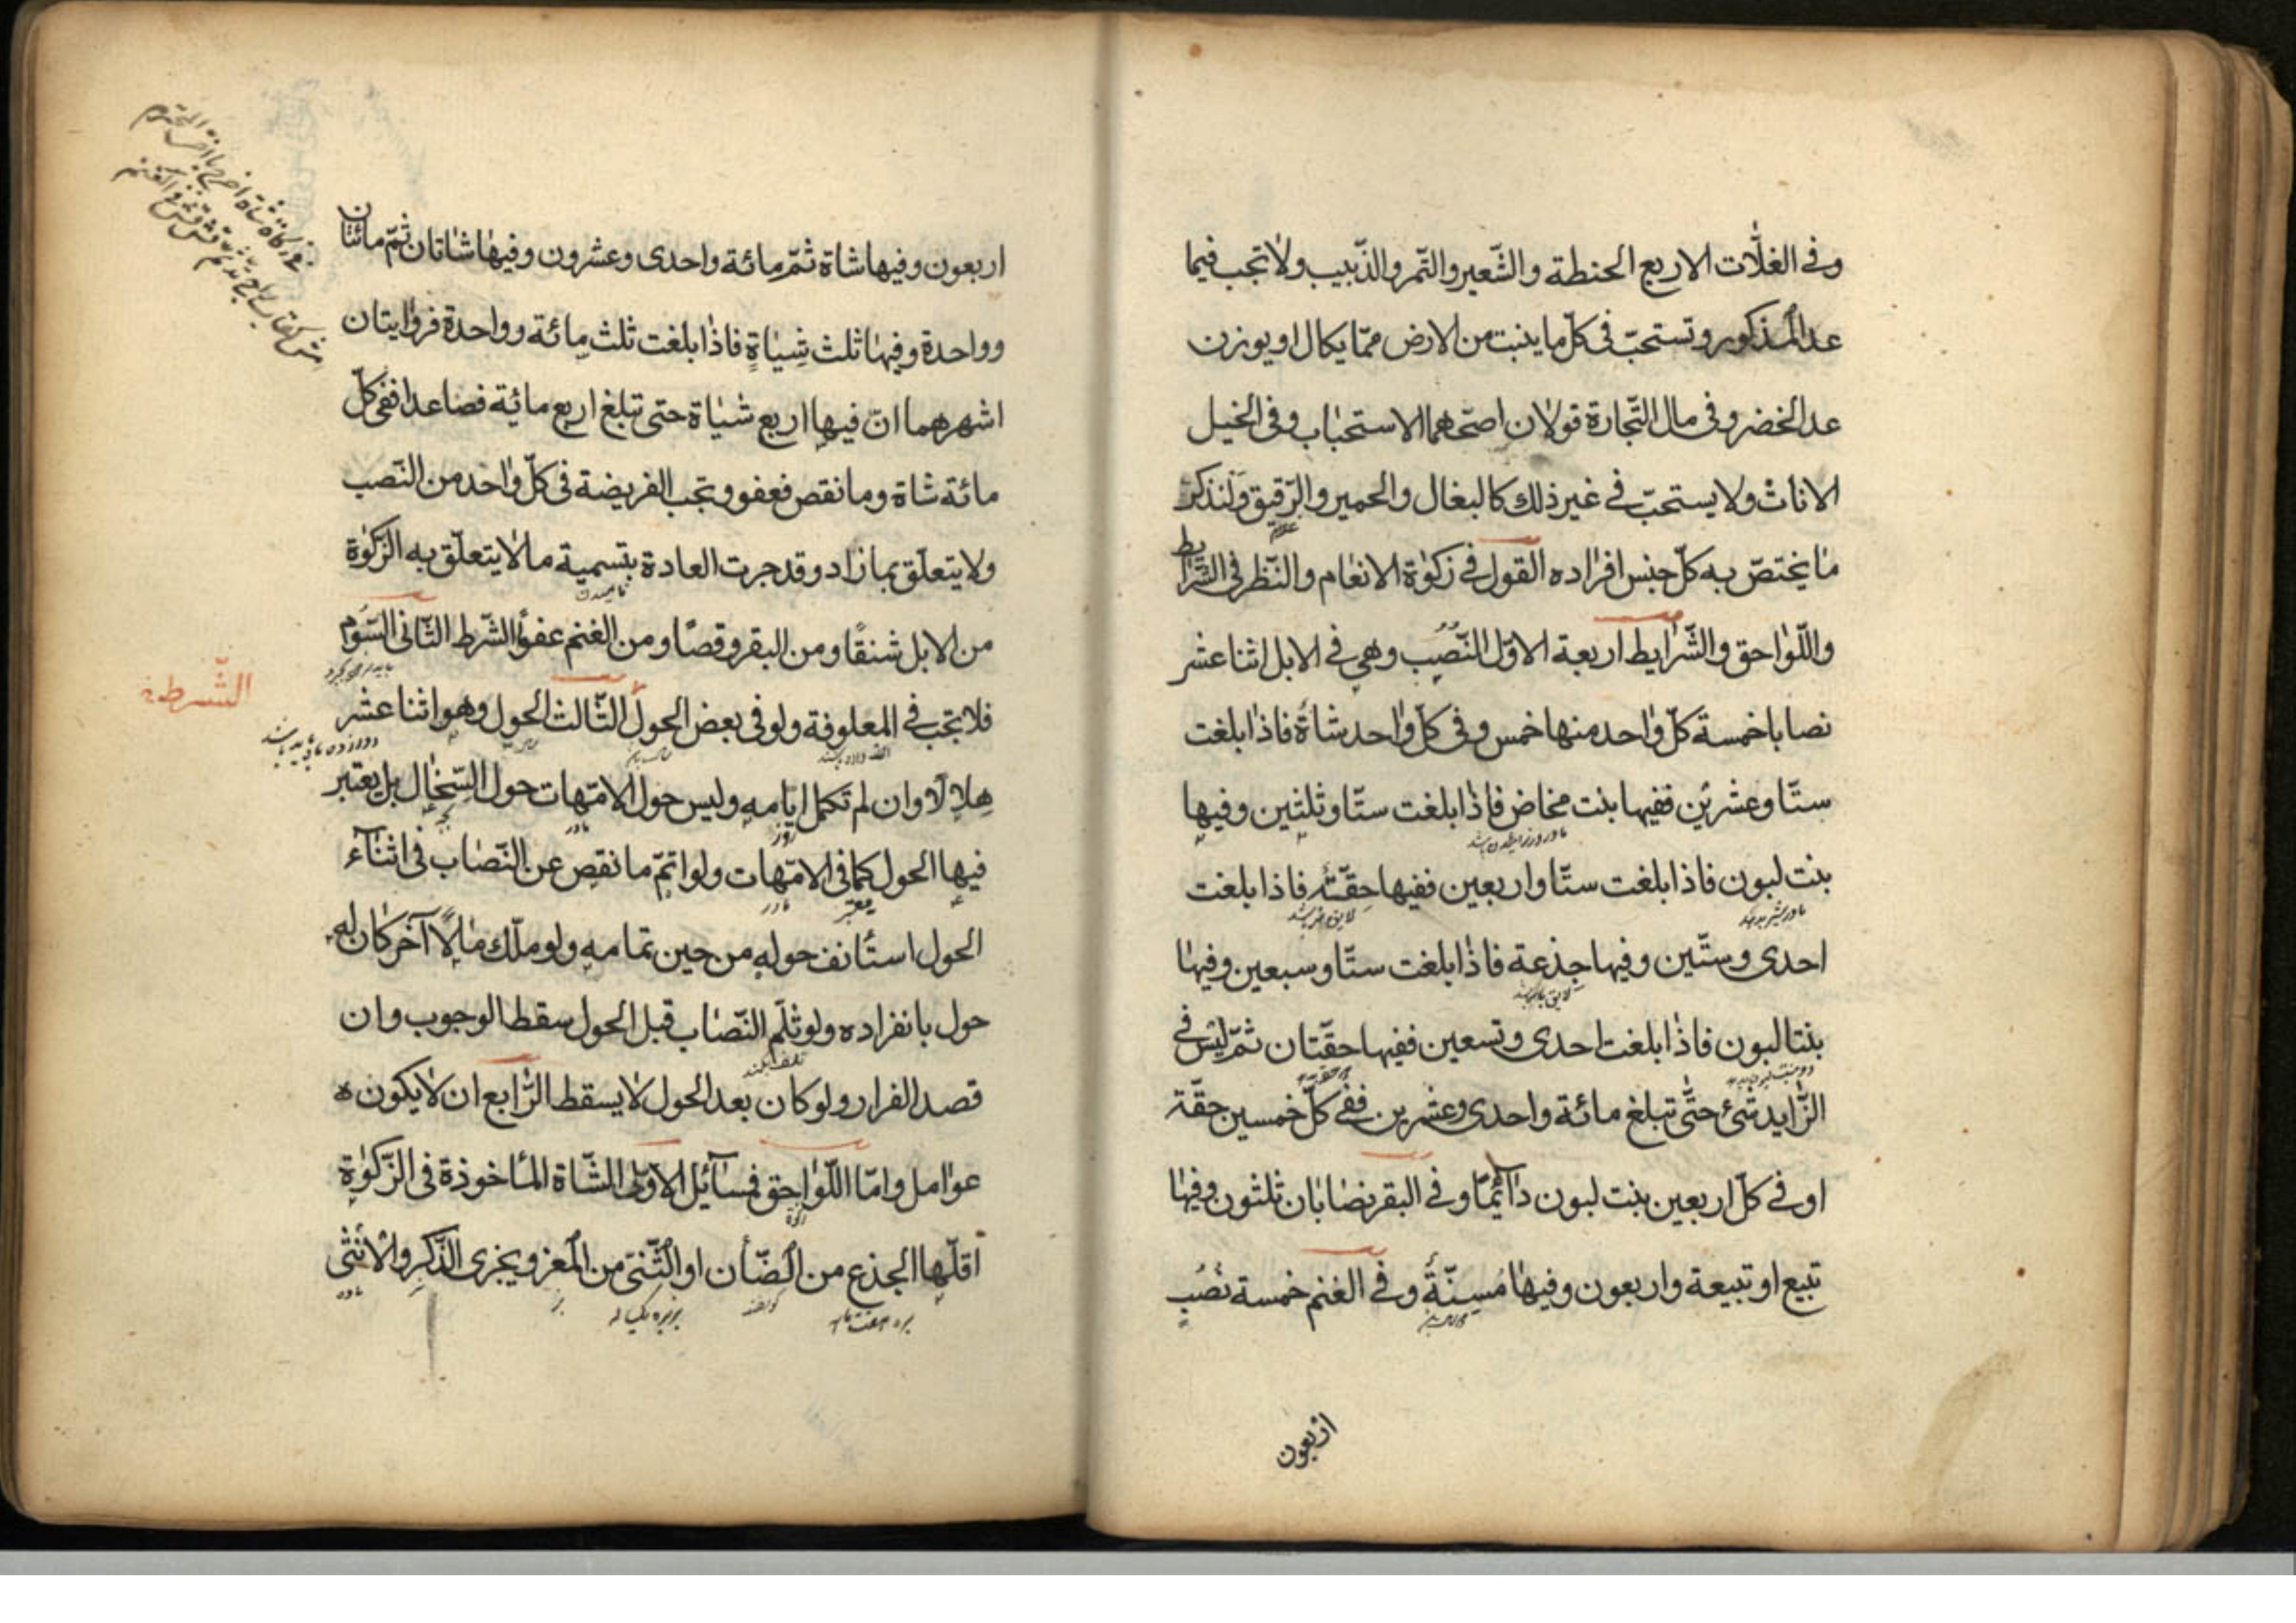 وفى الغلّات الاربع الحنطة والشّعير والتّمر والذّبيب ولا تجب فيما
عدا المذكور وتستحبّ فى كلّ ما ينبت من الارض ممّا يكال او يوزن
عدا الخضر وفى مال التّجارة قولان اصحّهما الاستحباب وفى الخيل
الاناث ولا يستحبّ فى غير ذلك كالبغال والحمير والرّقيق ولنذكر
ما يختصّ به كلّ جنس افراده القول فى زكوة الانعام والنّظر فى الشّرايط
واللّواحق والشّرايط اربعة الاوّل النّصب وهى فى الابل اثنا عشر
نصابا خمسة كلّ واحد منها خمس وفى كلّ واحد شاة فاذا بلغت
ستّا وعشرين ففيها بنت مخاض فاذا بلغت ستّا وثلثين وفيها
بنت لبون فاذا بلغت ستّا واربعين ففيها حقّة فاذا بلغت
احدى وستّين وفيها جذعة فاذا بلغت ستّا وسبعين وفيها
بنتا لبون فاذا بلغت احدى وتسعين ففيها حقّتان ثمّ ليس فى
الزّايد شئ حتّى تبلغ مائة واحدى وعشرين ففى كلّ خمسين حقّة
او فى كلّ اربعين بنت لبون دآئما وفى البقر نصابان ثلثون وفيها
تبيع او تبيعة واربعون وفيها مسنّة وفى الغنم خمسة نصب
اربعون
اربعون وفيها شاة ثمّ مائة واحدى وعشرون وفيها شاتان ثمّ مائتان
وواحدة وفيها ثلث شياة فاذا بلغت ثلث مائة وواحدة فروايتان
اشهرهما انّ فيها اربع شياة حتى تبلغ اربع مائية فصاعدا ففى كلّ
مائة شاة وما نقص فعفو وتجب الفريضة فى كلّ واحد من النّصب
ولا يتعلّق بما زاد وقد جرت العادة بتسمية ما لا يتعلّق به الزّكوة
من الابل شنقًا ومن البقر وقصًا ومن الغنم عفوًا الشّرط الثّانى السّوم
فلا تجب فى المعلوفة ولو فى بعض الحول الثّالث الحول وهو اثنا عشر
الشّرط
هلالًا وان لم تكمل ايامه وليس حول الامّهات حول السّخال بل يعتبر
فيها الحول كما فى الامّهات ولو اتمّ ما نقص عن النّصاب فى اثنآء
الحول استأنف حوله من حين تمامه ولو ملّك مالًا آخر كان له
حول بانفراده ولو ثلم النّصاب قبل الحول سقط الوجوب وان
قصد الفرار ولو كان بعد الحول لا يسقط الرّابع ان لا يكون
عوامل وامّا اللّواحق فمسآئل الاولى الشّاة المأخوذة فى الزّكوة
اقلّها الجذع من الضّأن او الثّنى من المعز ويجزى الذّكر والانثى